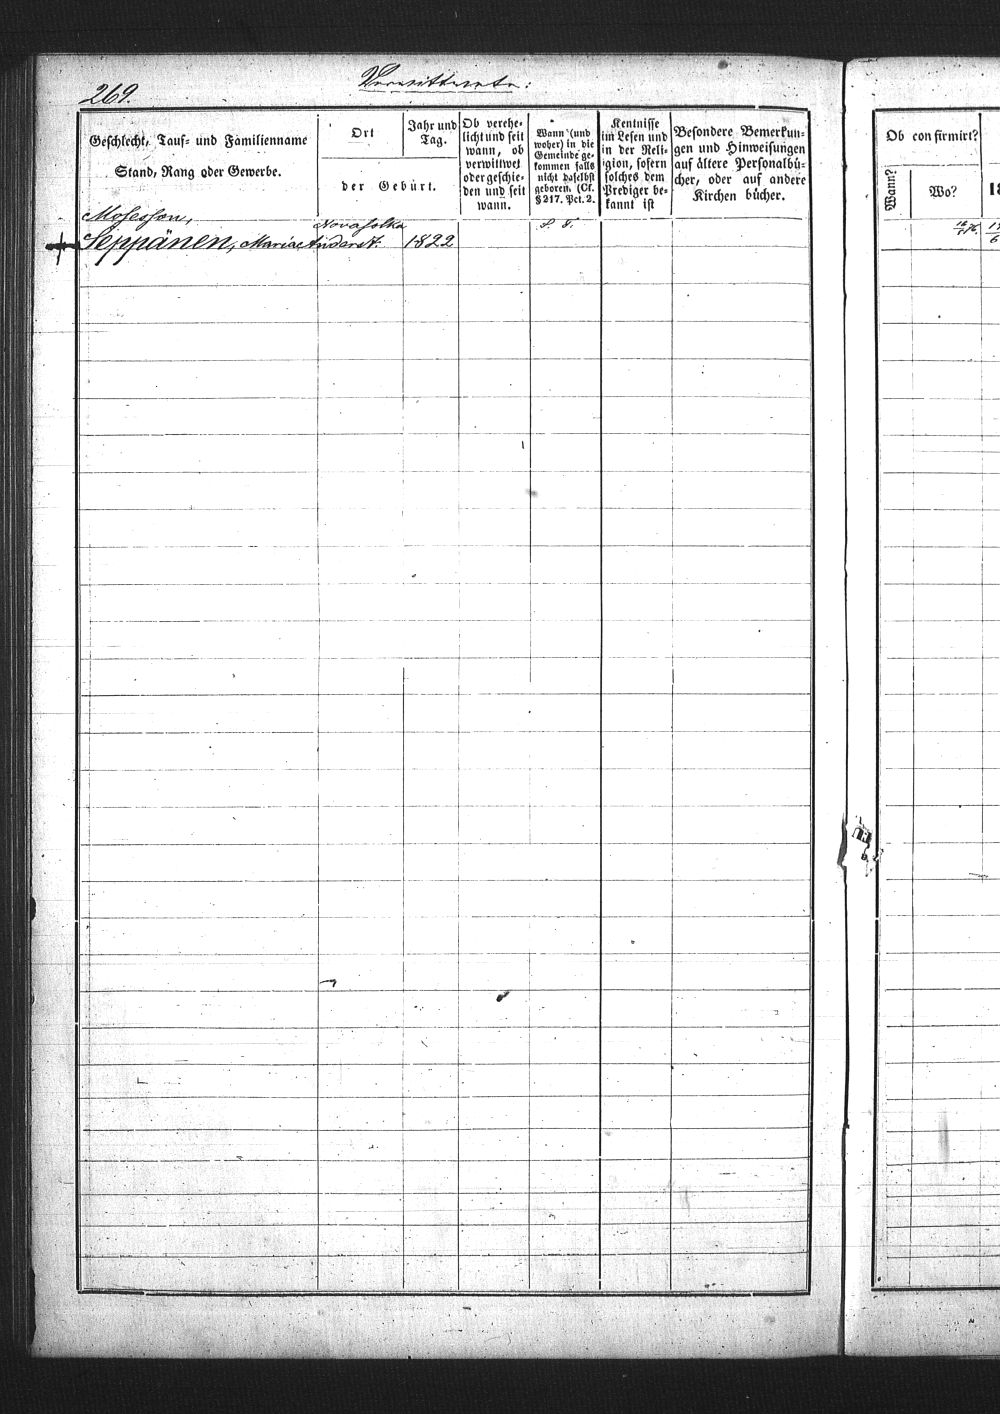 269.
Geschlecht, Tauf- und Familienname
Stand, Rang oder Gewerbe.
Ort
Jahr und
Tag.
der Geburt.
Ob verehe-
licht und seit
wann, ob
verwittwet
oder geschie-
den und seit
wann.
Wann (und
woher) in die
Gemeinde ge-
kommen falls
nicht daselbst
geboren. (Cf.
§ 217. Pct. 2.
Kentnisse
im Lesen und
in der Reli-
gion, sofern
solches dem
Prediger be-
kannt ist
Besondere Bemerkun-
gen und Hinweisungen
auf ältere Personalbü-
cher, oder auf andere
Kirchen bücher.
Ob confirmirt?
Wann?
Wo?
18
Mosesson,
Seppänen, Maria Anderst. 1822